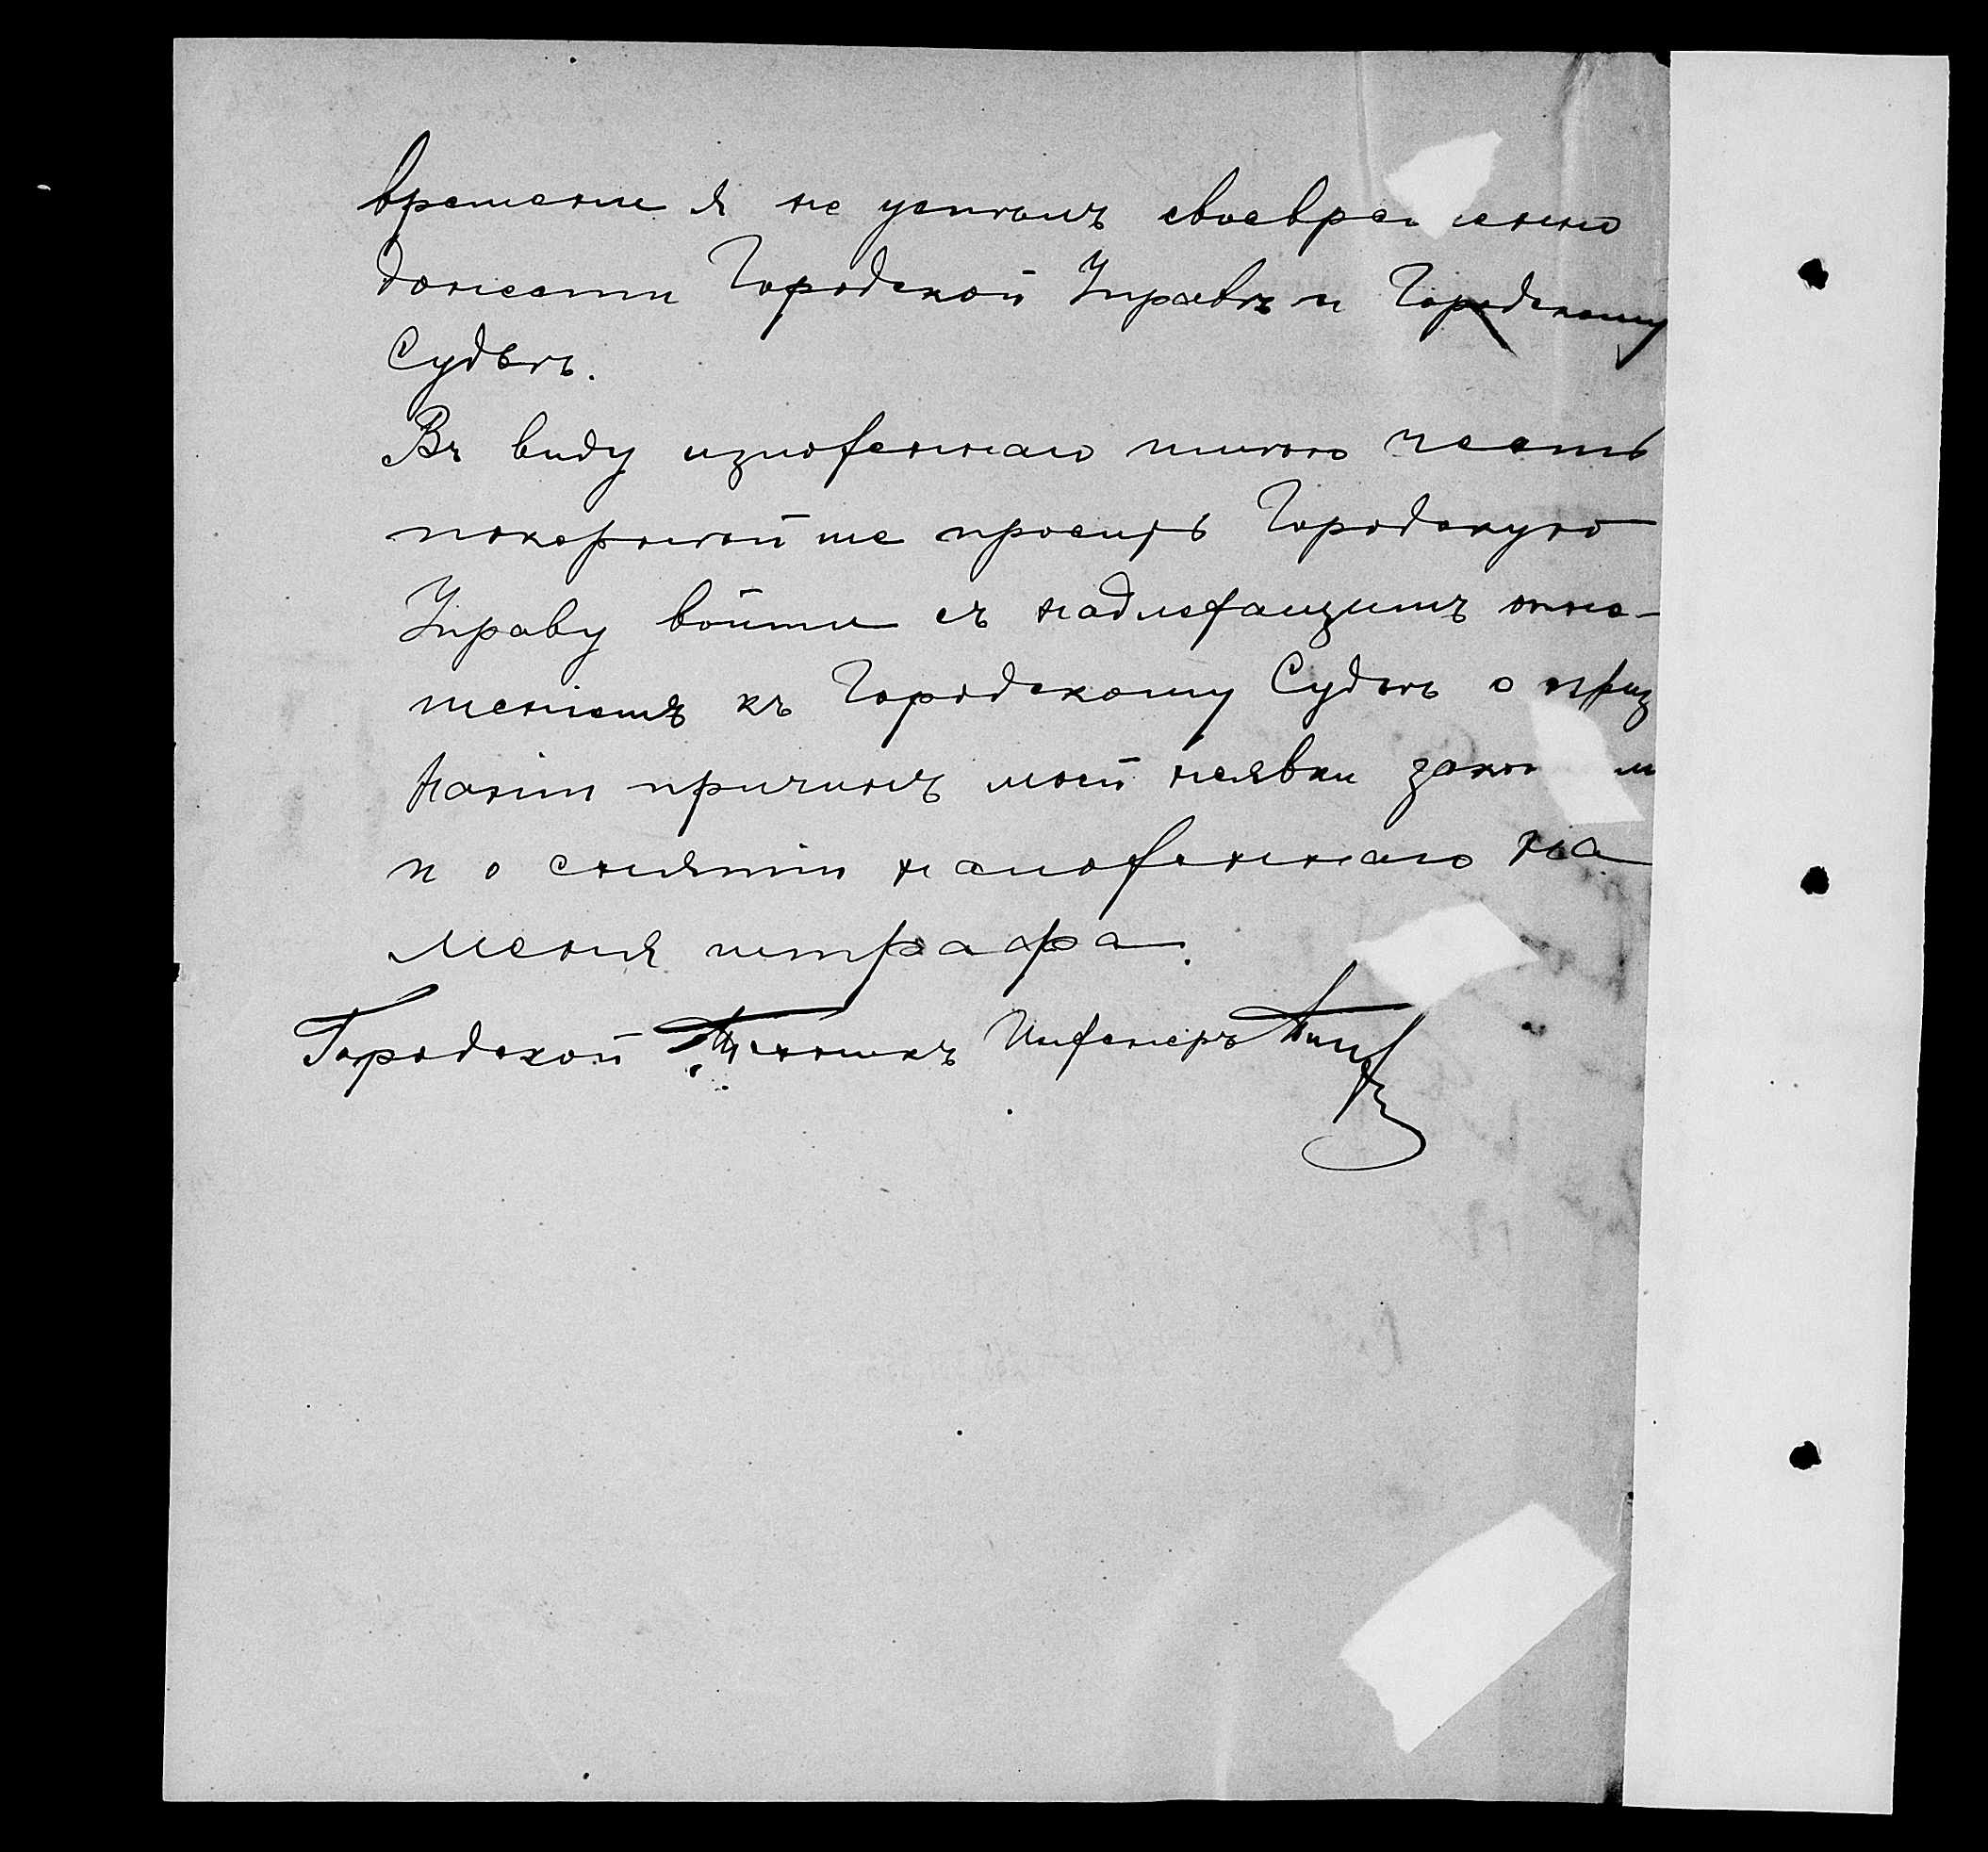 времени я не успѣлъ своевременно
донести Городской Управѣ и Городскому
Судьѣ.
Въ виду изложеннаго имѣю честь
покорнѣйше просить Городскую
Управу войти съ надлежащимъ отно-
шеніемъ къ Городскому Судьѣ о приз
наніи причинъ моей неявки
и о снятіи наложеннаго на
меня штрафа.
Городской Техникъ Инженеръ